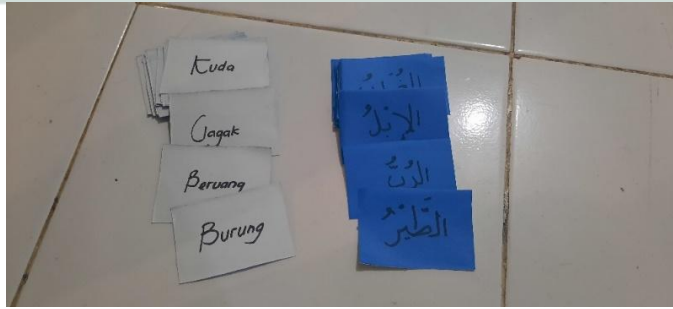 Kuda
Gagak
Beruang
Burung
الإِبِلُ
الدُّبُّ
الطَّيْرُ